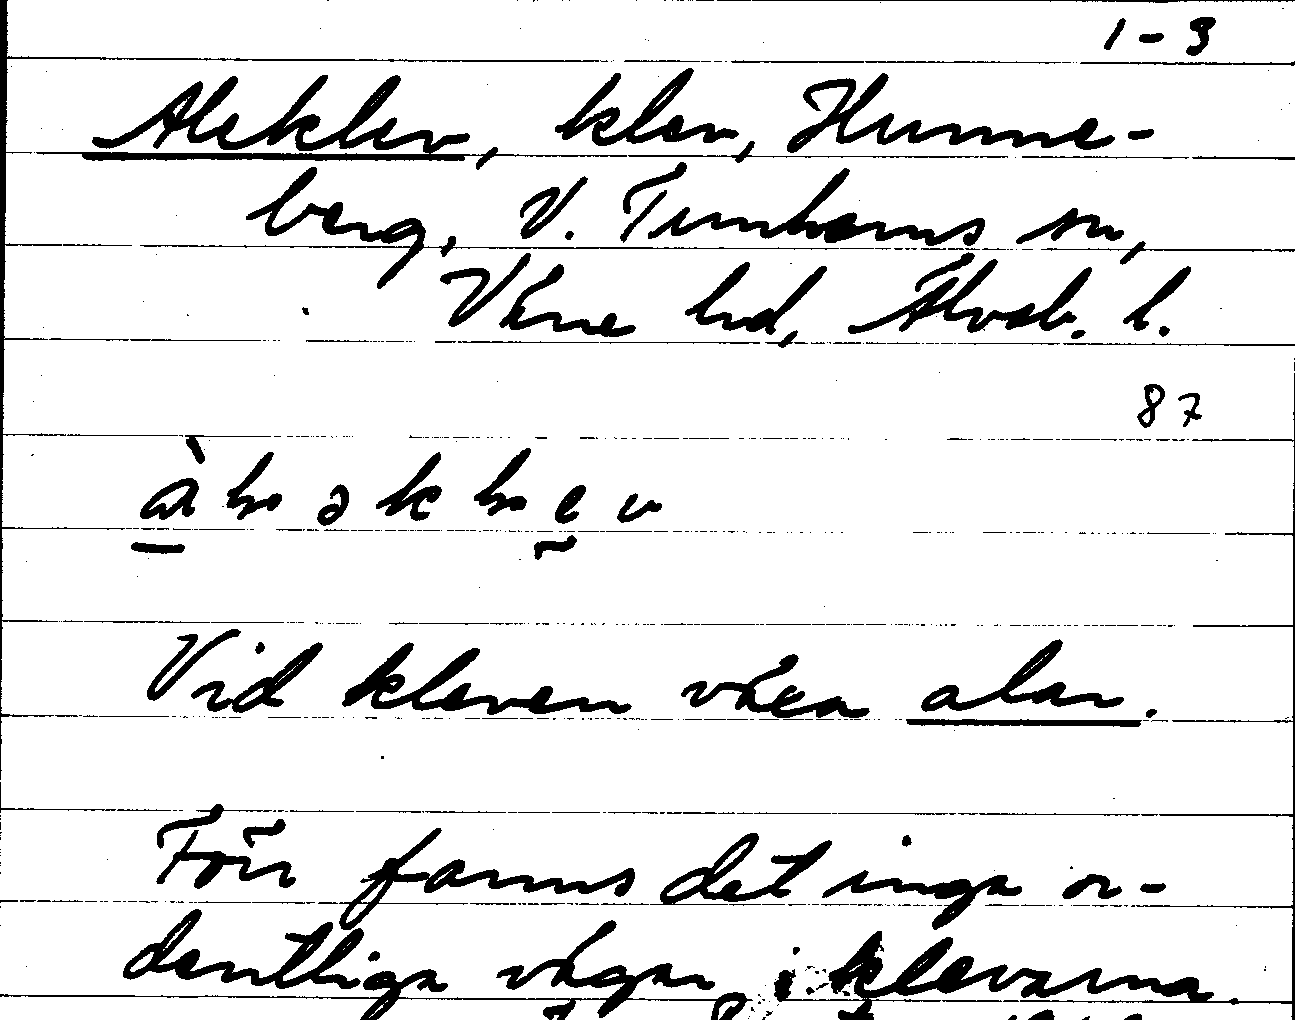 1-3
Aleklev, klev, Hunne-
berg, V. Tunhems sn,
Väne hd, Älvsb. l.
87
Vid kleven växa alar.
Förr fanns det inga or-
dentliga vägar i klevarna.